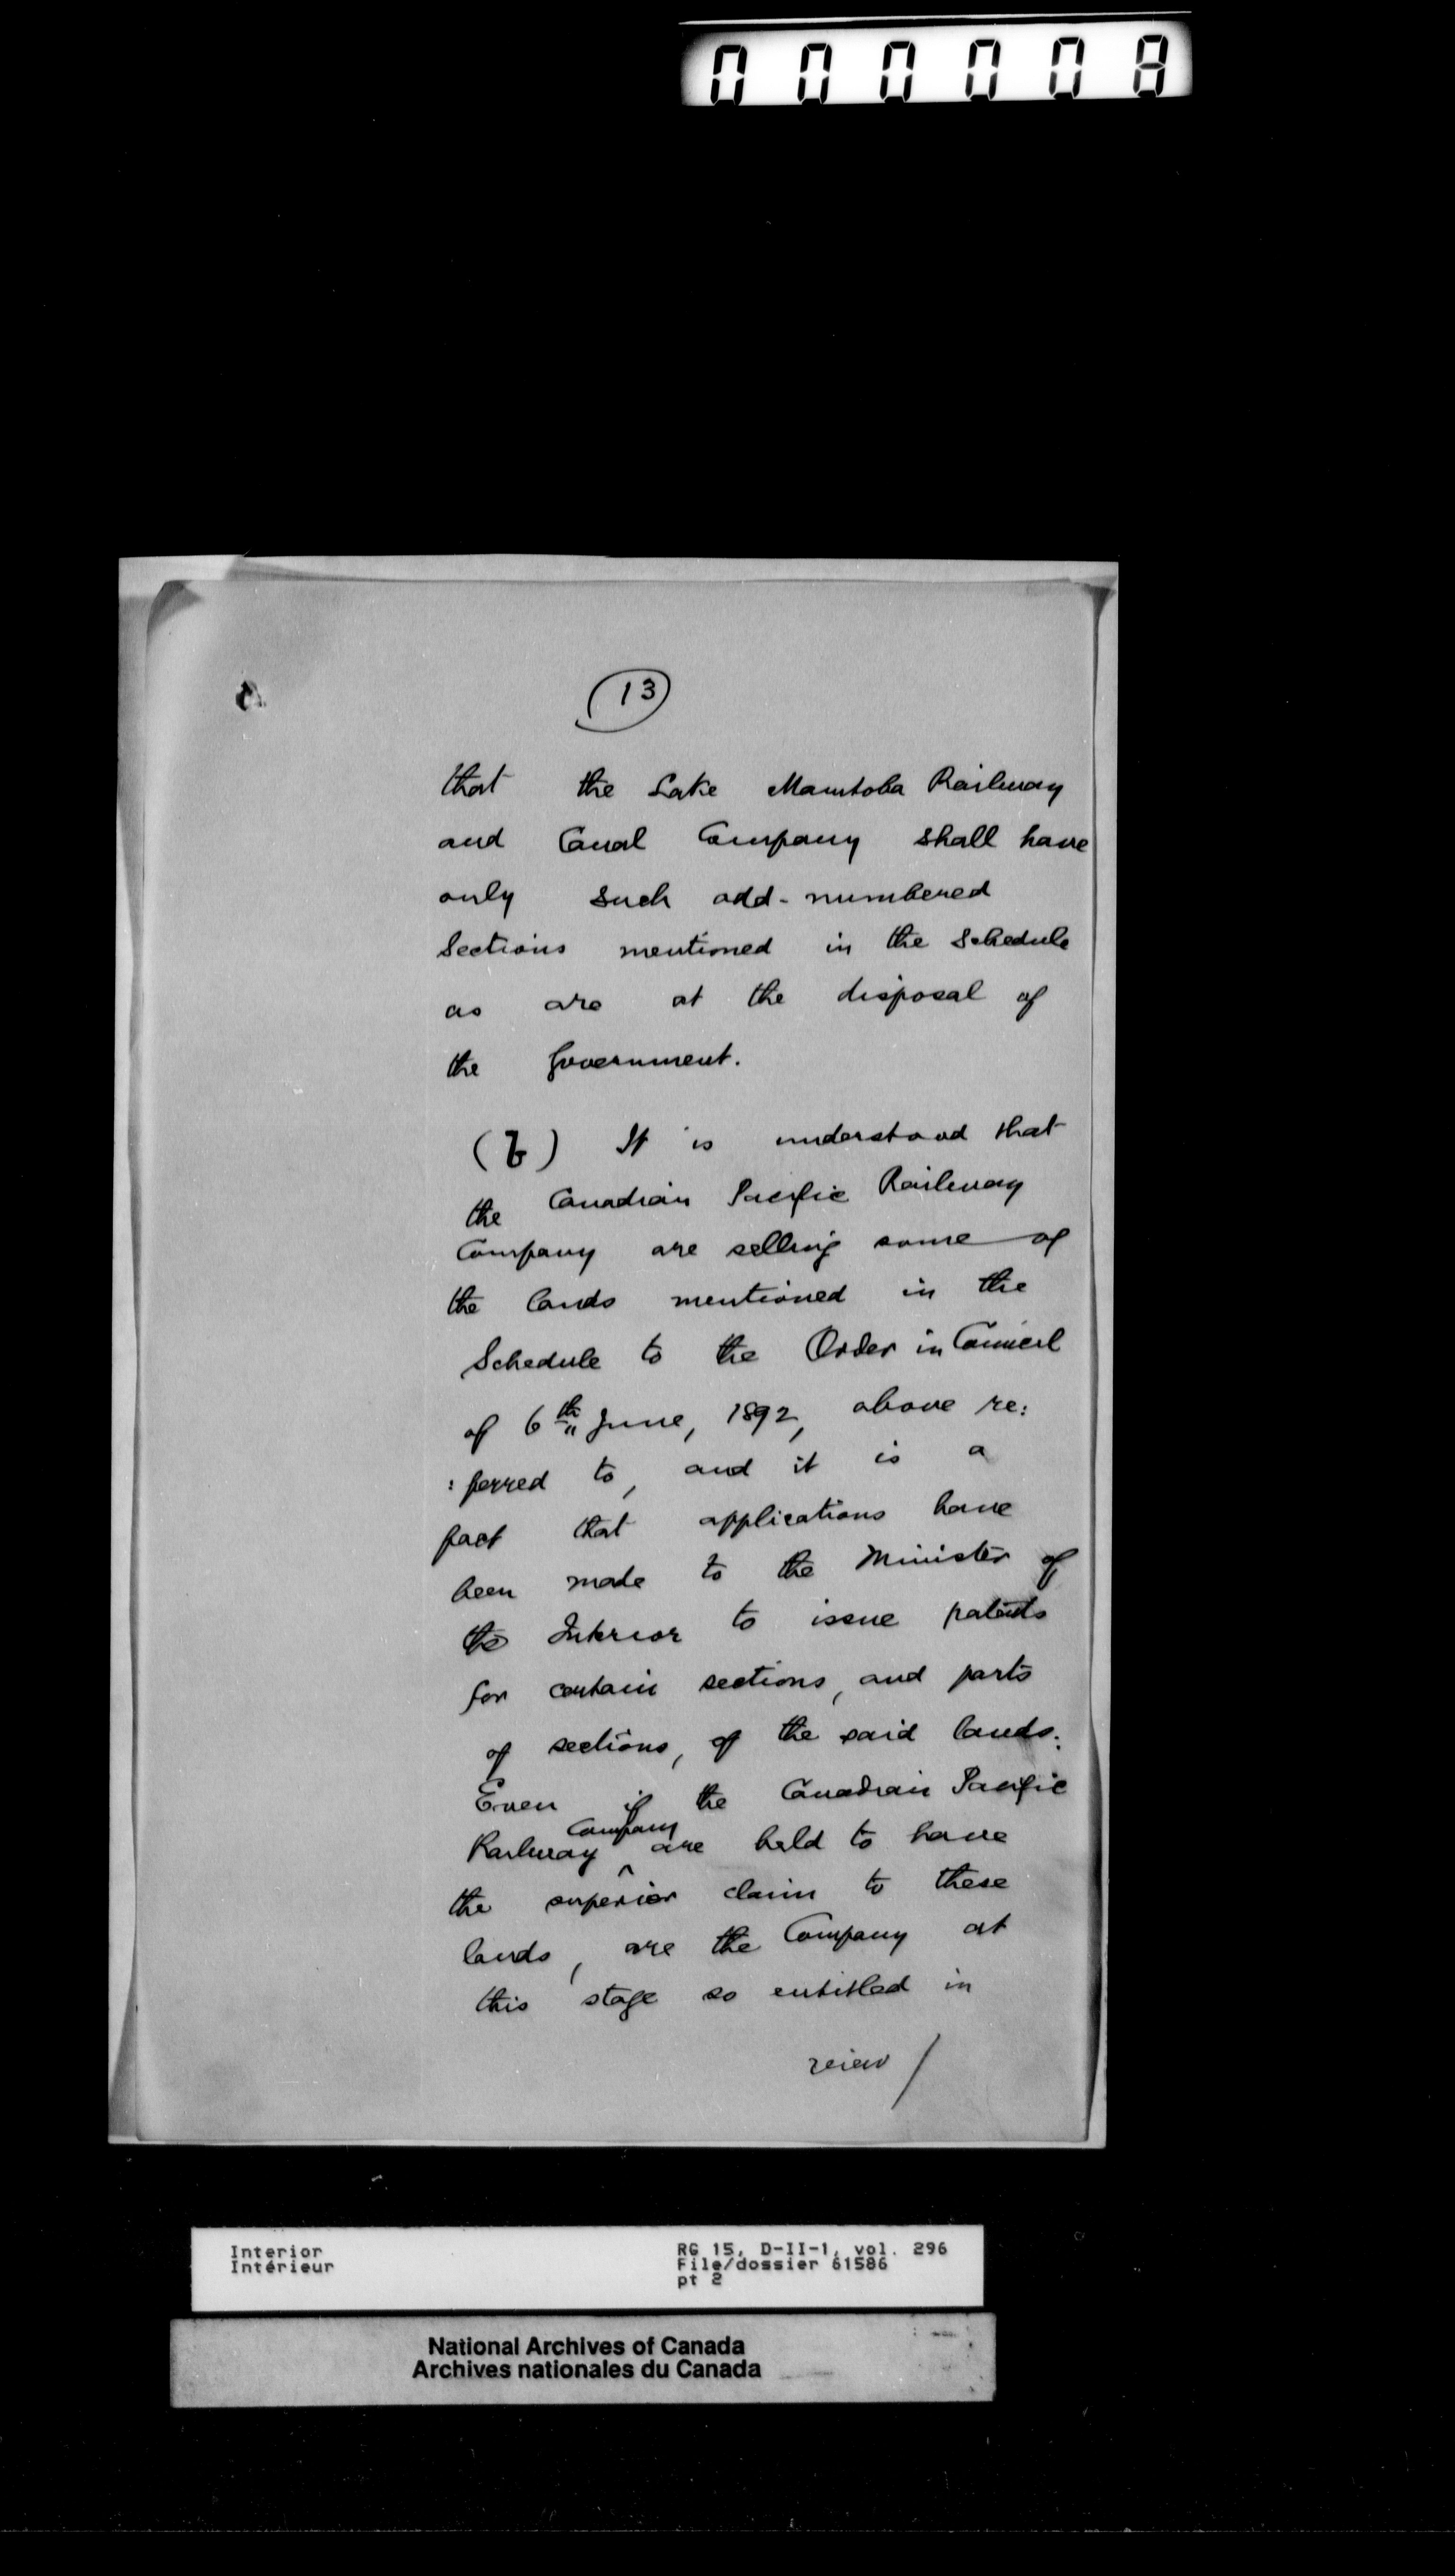 000008
13
that the Lake Manitoba Railway
and Canal Company shall have
only such odd-numbered
Sections mentioned in the Schedule
as are at the disposal of
the Government.
(b) It is understood that
the Canadian Pacific Railway
Company are selling some of
the lands mentioned in the
Schedule to the Order in Council
of 6th June, 1892, above re:
:ferred to, and it is a
fact that applications have
been made to the Minister of
the Interior to issue patents
for certain sections, and parts
of sections, of the said lands.
Even if the Canadian Pacific
Railway Company are held to have
the superior claim to these
lands, are the Company at
this stage so entitled in
view /
Interior
Intérieur
RG 15, D-II-1, vol. 296
File/dossier 61586
pt 2
National Archives of Canada
Archives nationales du Canada